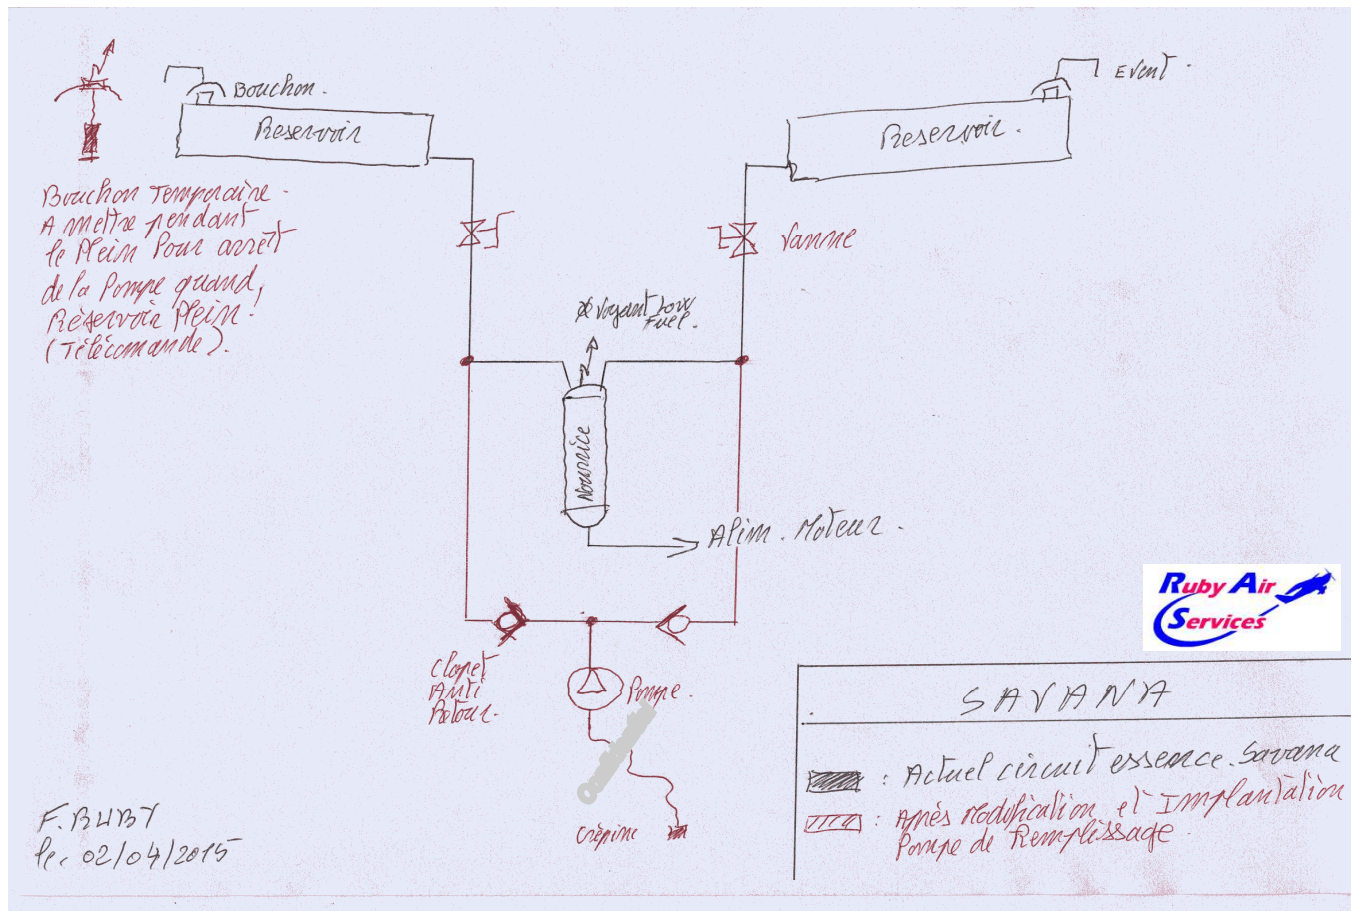 Bouchon.
Reservoir
Event.
Reservoir.
Bouchon Temporaire.
A mettre pendant
le Plein Pour arrêt
de la Pompe quand,
Réservoir Plein!
(Télécomande).
Vanne
Voyant Low
Fuel.
Nourrice
Alim. Moteur.
Clapet
Anti
Retour.
Pompe.
Crépine
Ruby Air
Services
SAVANA
: Actuel circuit essence. Savana
: Après Modification et Implantation
Pompe de Remplissage.
F. RUBY
le. 02/04/2015